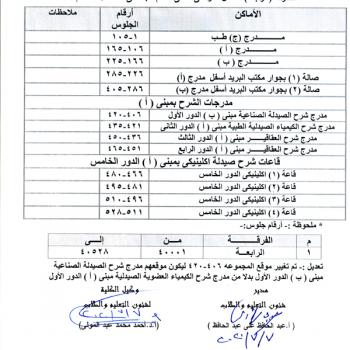 الأماكن أرقام الجلوس ملاحظات
مدرج (ج) طب ١-١٠٥
مدرج ( أ ) ١٠٦-١٦٥
مدرج ( ب ) ١٦٦-٢٢٥
صالة (١) بجوار مكتب البريد أسفل مدرج (أ) ٢٢٦-٢٨٥
صالة (٢) بجوار مكتب البريد أسفل مدرج (ب) ٢٨٦-٤٠٥
مدرجات الشرح بمبنى ( أ )
مدرج شرح الصيدلة الصناعية مبنى ( ب ) الدور الأول ٤٠٦-٤٢٠
مدرج شرح الكيمياء الصيدلية الطبية مبنى ( أ ) الدور الثانى ٤٢١-٤٣٥
مدرج شرح العقاقير مبنى ( أ ) الدور الثالث ٤٣٦-٤٥٠
مدرج شرح العقاقير مبنى ( أ ) الدور الرابع ٤٥١-٤٦٥
قاعات شرح صيدلة اكلينيكى بمبنى ( أ ) الدور الخامس
قاعة (١) اكلينيكى الدور الخامس ٤٦٦-٤٨٠
قاعة (٢) اكلينيكى الدور الخامس ٤٨١-٤٩٥
قاعة (٣) اكلينيكى الدور الخامس ٤٩٦-٥١٠
قاعة (٤) اكلينيكى الدور الخامس ٥١١-٥٢٨
* ملحوظة :- أرقام جلوس:-
م الفرقة من إلى
١ الرابعة ٤٠٠٠١ ٤٠٥٢٨
تعديل :- تم تغيير موقع المجموعه ٤٠٦-٤٢٠ ليكون موقعهم مدرج شرح الصيدلة الصناعية
مبنى ( ب ) الدور الأول بدلا من مدرج شرح الكيمياء العضوية الصيدلية مبنى ( أ ) الدور الأول
مدير وكيل الكلية
شئون التعليم والطلاب لشئون التعليم والطلاب
أ.عبد الحافظ على عبد الحافظ أ.د/أحمد محمد عبد المولى